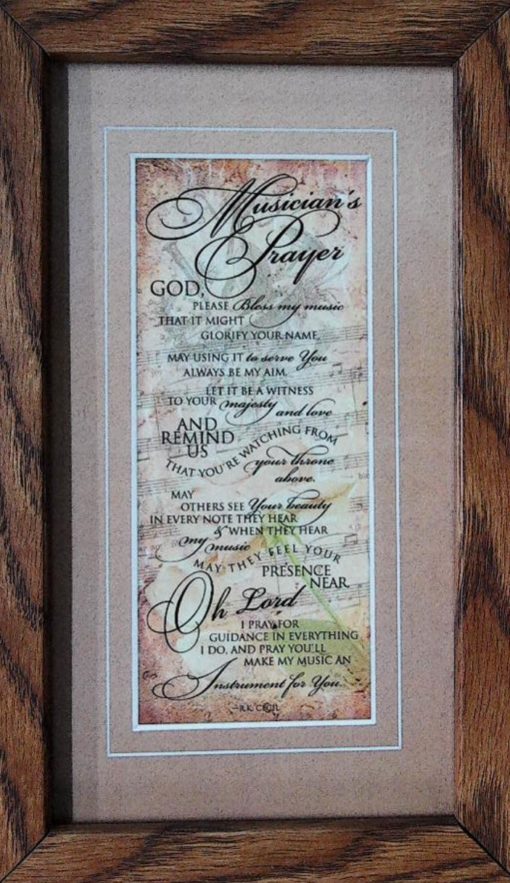 Musician's
Prayer
GOD,
PLEASE Bless my music
THAT IT MIGHT
GLORIFY YOUR NAME,
MAY USING IT to serve You
ALWAYS BE MY AIM.
LET IT BE A WITNESS
TO YOUR majesty and love
AND
REMIND
US
THAT YOU'RE WATCHING FROM
your throne
above.
MAY
OTHERS SEE Your beauty
IN EVERY NOTE THEY HEAR
& WHEN THEY HEAR
my music
MAY THEY FEEL YOUR
PRESENCE
NEAR.
Oh Lord
I PRAY FOR
GUIDANCE IN EVERYTHING
I DO, AND PRAY YOU'LL
MAKE MY MUSIC AN
Instrument for You.
–R.K. CECIL